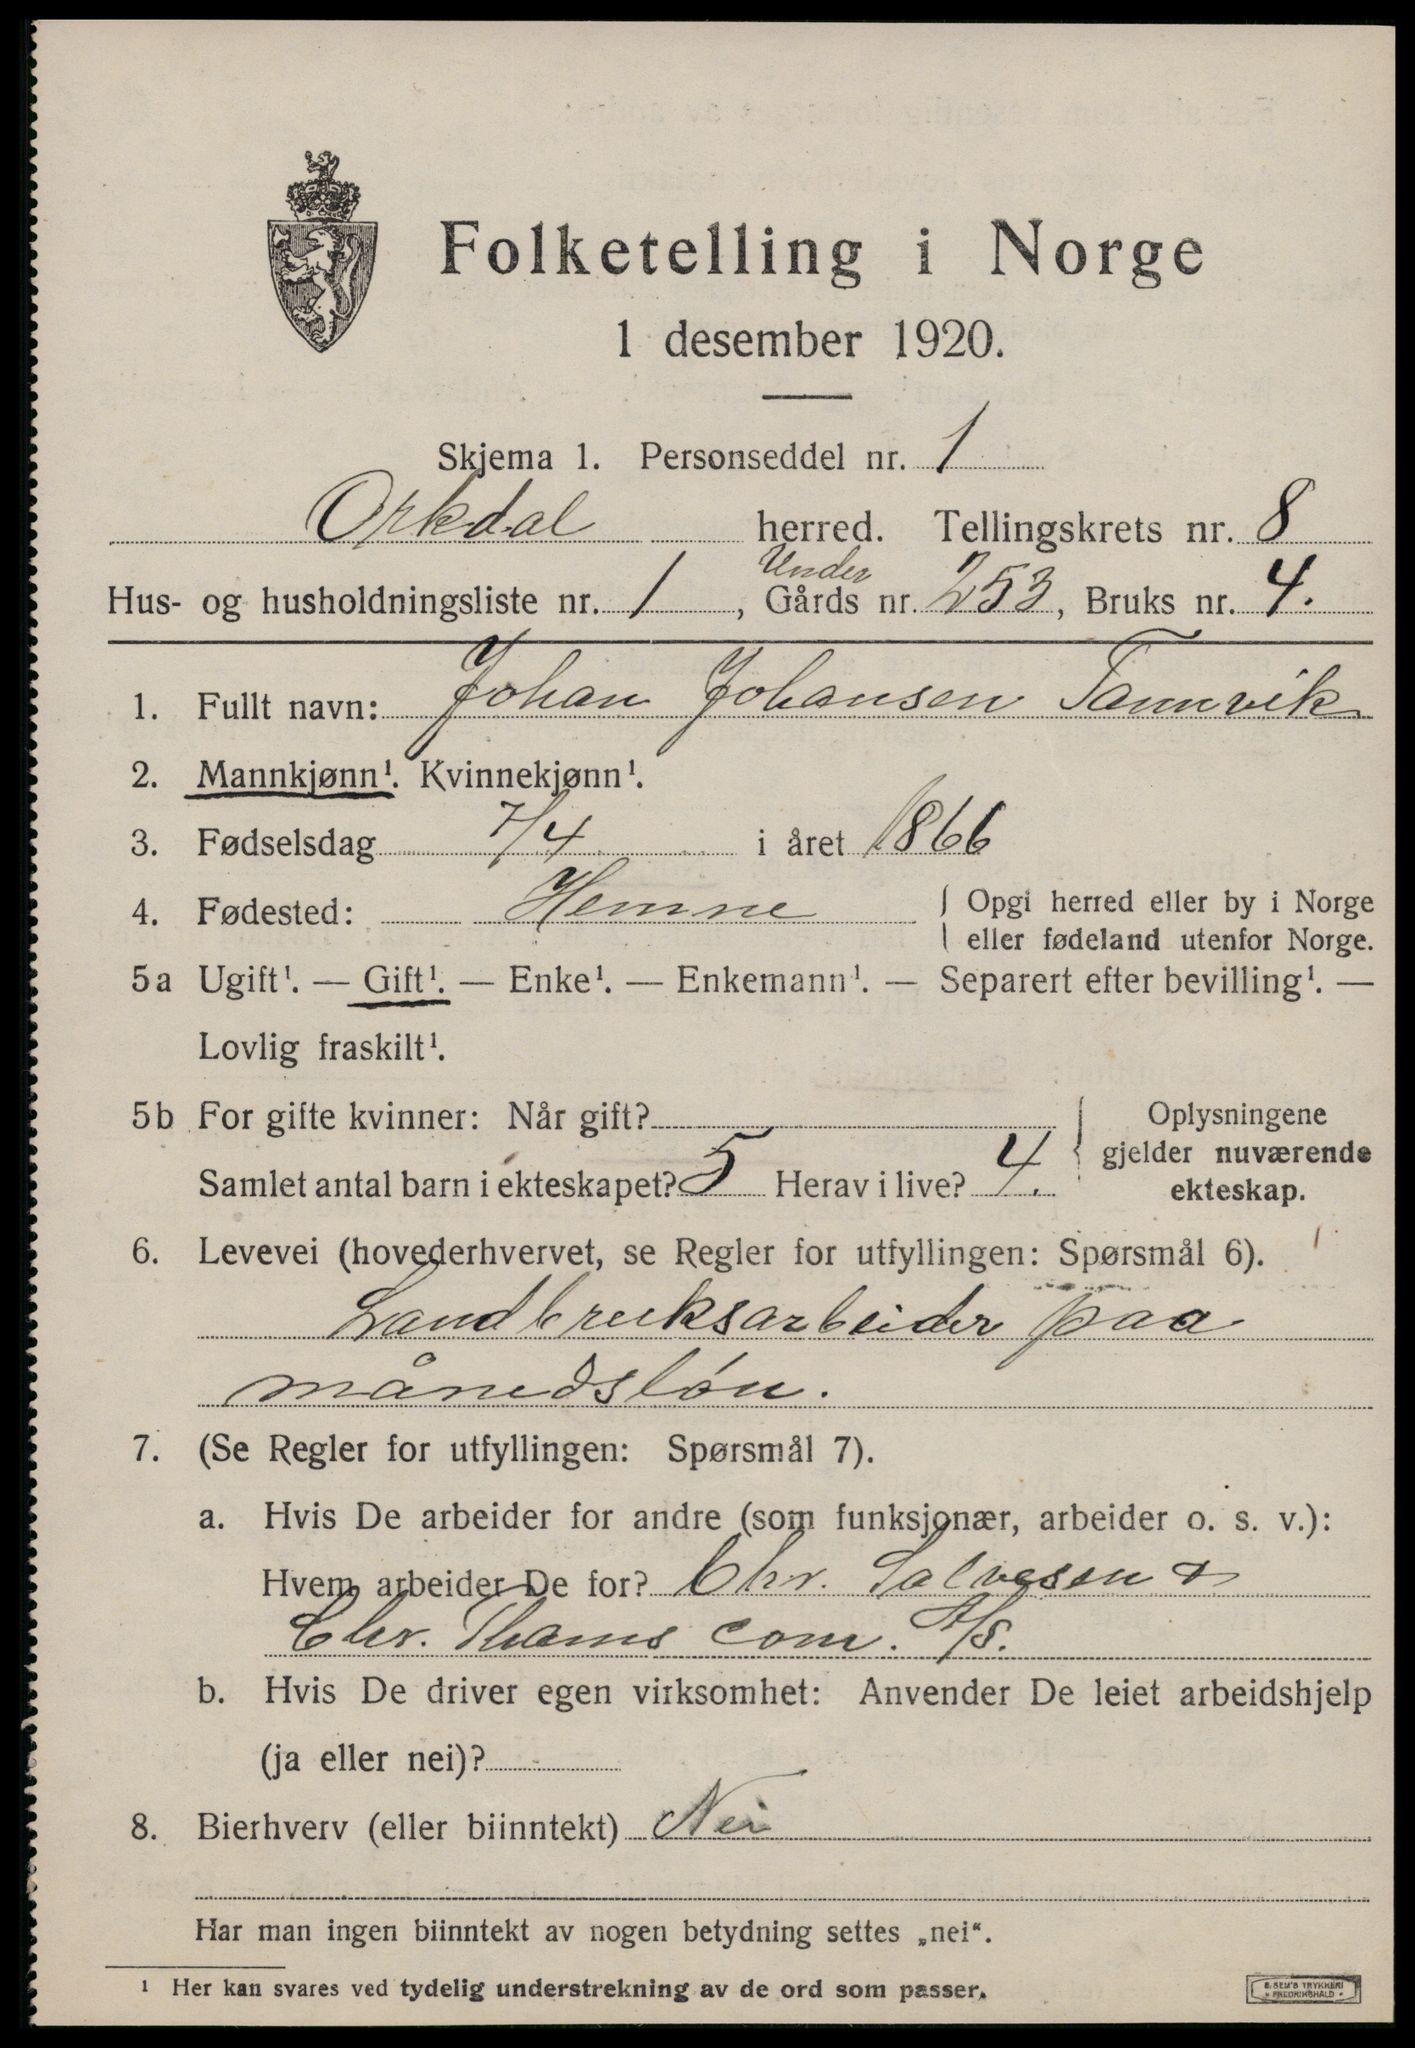 Folketelling i Norge
1 desember 1920.
Skjema 1. Personseddel nr. 1
Orkdal herred. Tellingskrets nr. 8
Under
Hus- og husholdningsliste nr. 1, Gårds nr. 253, Bruks nr. 4.
1. Fullt navn: Johan Johansen Tannvik
2. Mannkjønn¹. Kvinnekjønn¹.
3. Fødselsdag 7/4 i året 1866
4. Fødested: Hemne { Opgi herred eller by i Norge
eller fødeland utenfor Norge.
5a Ugift¹. — Gift¹. — Enke¹. — Enkemann¹. — Separert efter bevilling¹. —
Lovlig fraskilt¹.
5b For gifte kvinner: Når gift?
Samlet antal barn i ekteskapet? 5 Herav i live? 4.
Oplysningene
gjelder nuværende
ekteskap.
6. Levevei (hovederhvervet, se Regler for utfyllingen: Spørsmål 6).
Landbruksarbeider paa
månedsløn.
7. (Se Regler for utfyllingen: Spørsmål 7).
a. Hvis De arbeider for andre (som funksjonær, arbeider o. s. v.):
Hvem arbeider De for? Chr. Salvesen &
Chr. Thams com. A/S.
b. Hvis De driver egen virksomhet: Anvender De leiet arbeidshjelp
(ja eller nei)?
8. Bierhverv (eller biinntekt) Nei
Har man ingen biinntekt av nogen betydning settes „nei“.
¹ Her kan svares ved tydelig understrekning av de ord som passer.
E. SEM'S TRYKKERI
FREDRIKSHALD